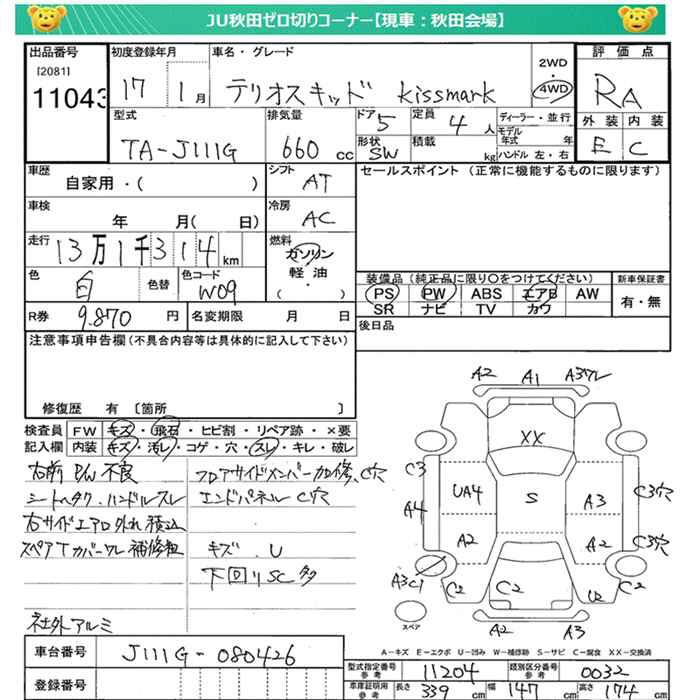 JU秋田ゼロ切りコーナー【現車：秋田会場】
出品番号 初度登録年月 車名・グレード 評価点
[2081]
11043 17 1月 テリオスキッド kissmark 2WD・4WD RA
型式 排気量 ドア 定員 ディーラー・並行 外装 内装
TA-J111G 660cc 5 4人 モデル年式 年 E C
形状 SW 積載 kg ハンドル 左・右
車歴 シフト セールスポイント (正常に機能するものに限ります)
自家用・( ) AT
車検 冷房
年 月( 日) AC
走行 燃料
13万1千314km ガソリン
軽油
( )
色 白 色替 色コード W09
装備品 (純正品に限り○をつけてください) 新車保証書
PS PW ABS エアB AW 有・無
SR ナビ TV カワ
R券 9.870円 名変期限 月 日
後日品
注意事項申告欄 (不具合内容等は具体的に記入して下さい)
修復歴 有 [箇所 ]
検査員 FW キズ・飛石・ヒビ割・リペア跡・×要
記入欄 内装 キズ・汚レ・コゲ・穴・スレ・キレ・破レ
右前 P/W 不良 フロアサイドメンバー加修、C穴
シートヘタク.ハンドルスレ エンドパネル C穴
右サイドエアロ外れ積込
スペアTカバーワレ補修粗 キズ.U
下回りSC多
社外アルミ
A2 A1 A3ワレ
XX
C3 UA4 S A3 C3穴
A4
A2 A2 C3穴
A3C1 C2 C2 U2 C2
スペア A2 A3
A-キズ E-エクボ U-凹み W-補修跡 S-サビ C-腐食 XX-交換済
車台番号 J111G-080426
型式指定番号 参考 11204 類別区分番号 参考 0032
登録番号
車庫証明用 参考 長さ 339cm 幅 147cm 高さ 174cm